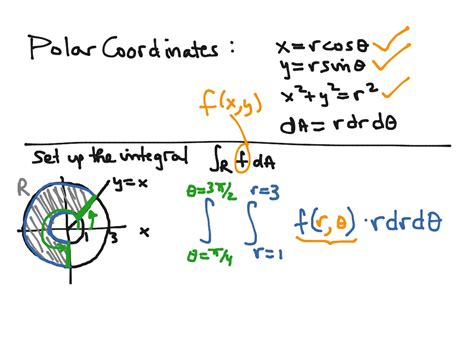 Polar Coordinates :
x = r cos θ ✓
y = r sin θ ✓
x² + y² = r² ✓
f(x,y)
dA = r dr dθ
Set up the integral ∫_R f dA
R
y = x
1 3 x
θ = 3π/2 r = 3
∫ ∫ f(r, θ) · r dr dθ
θ = π/4 r = 1